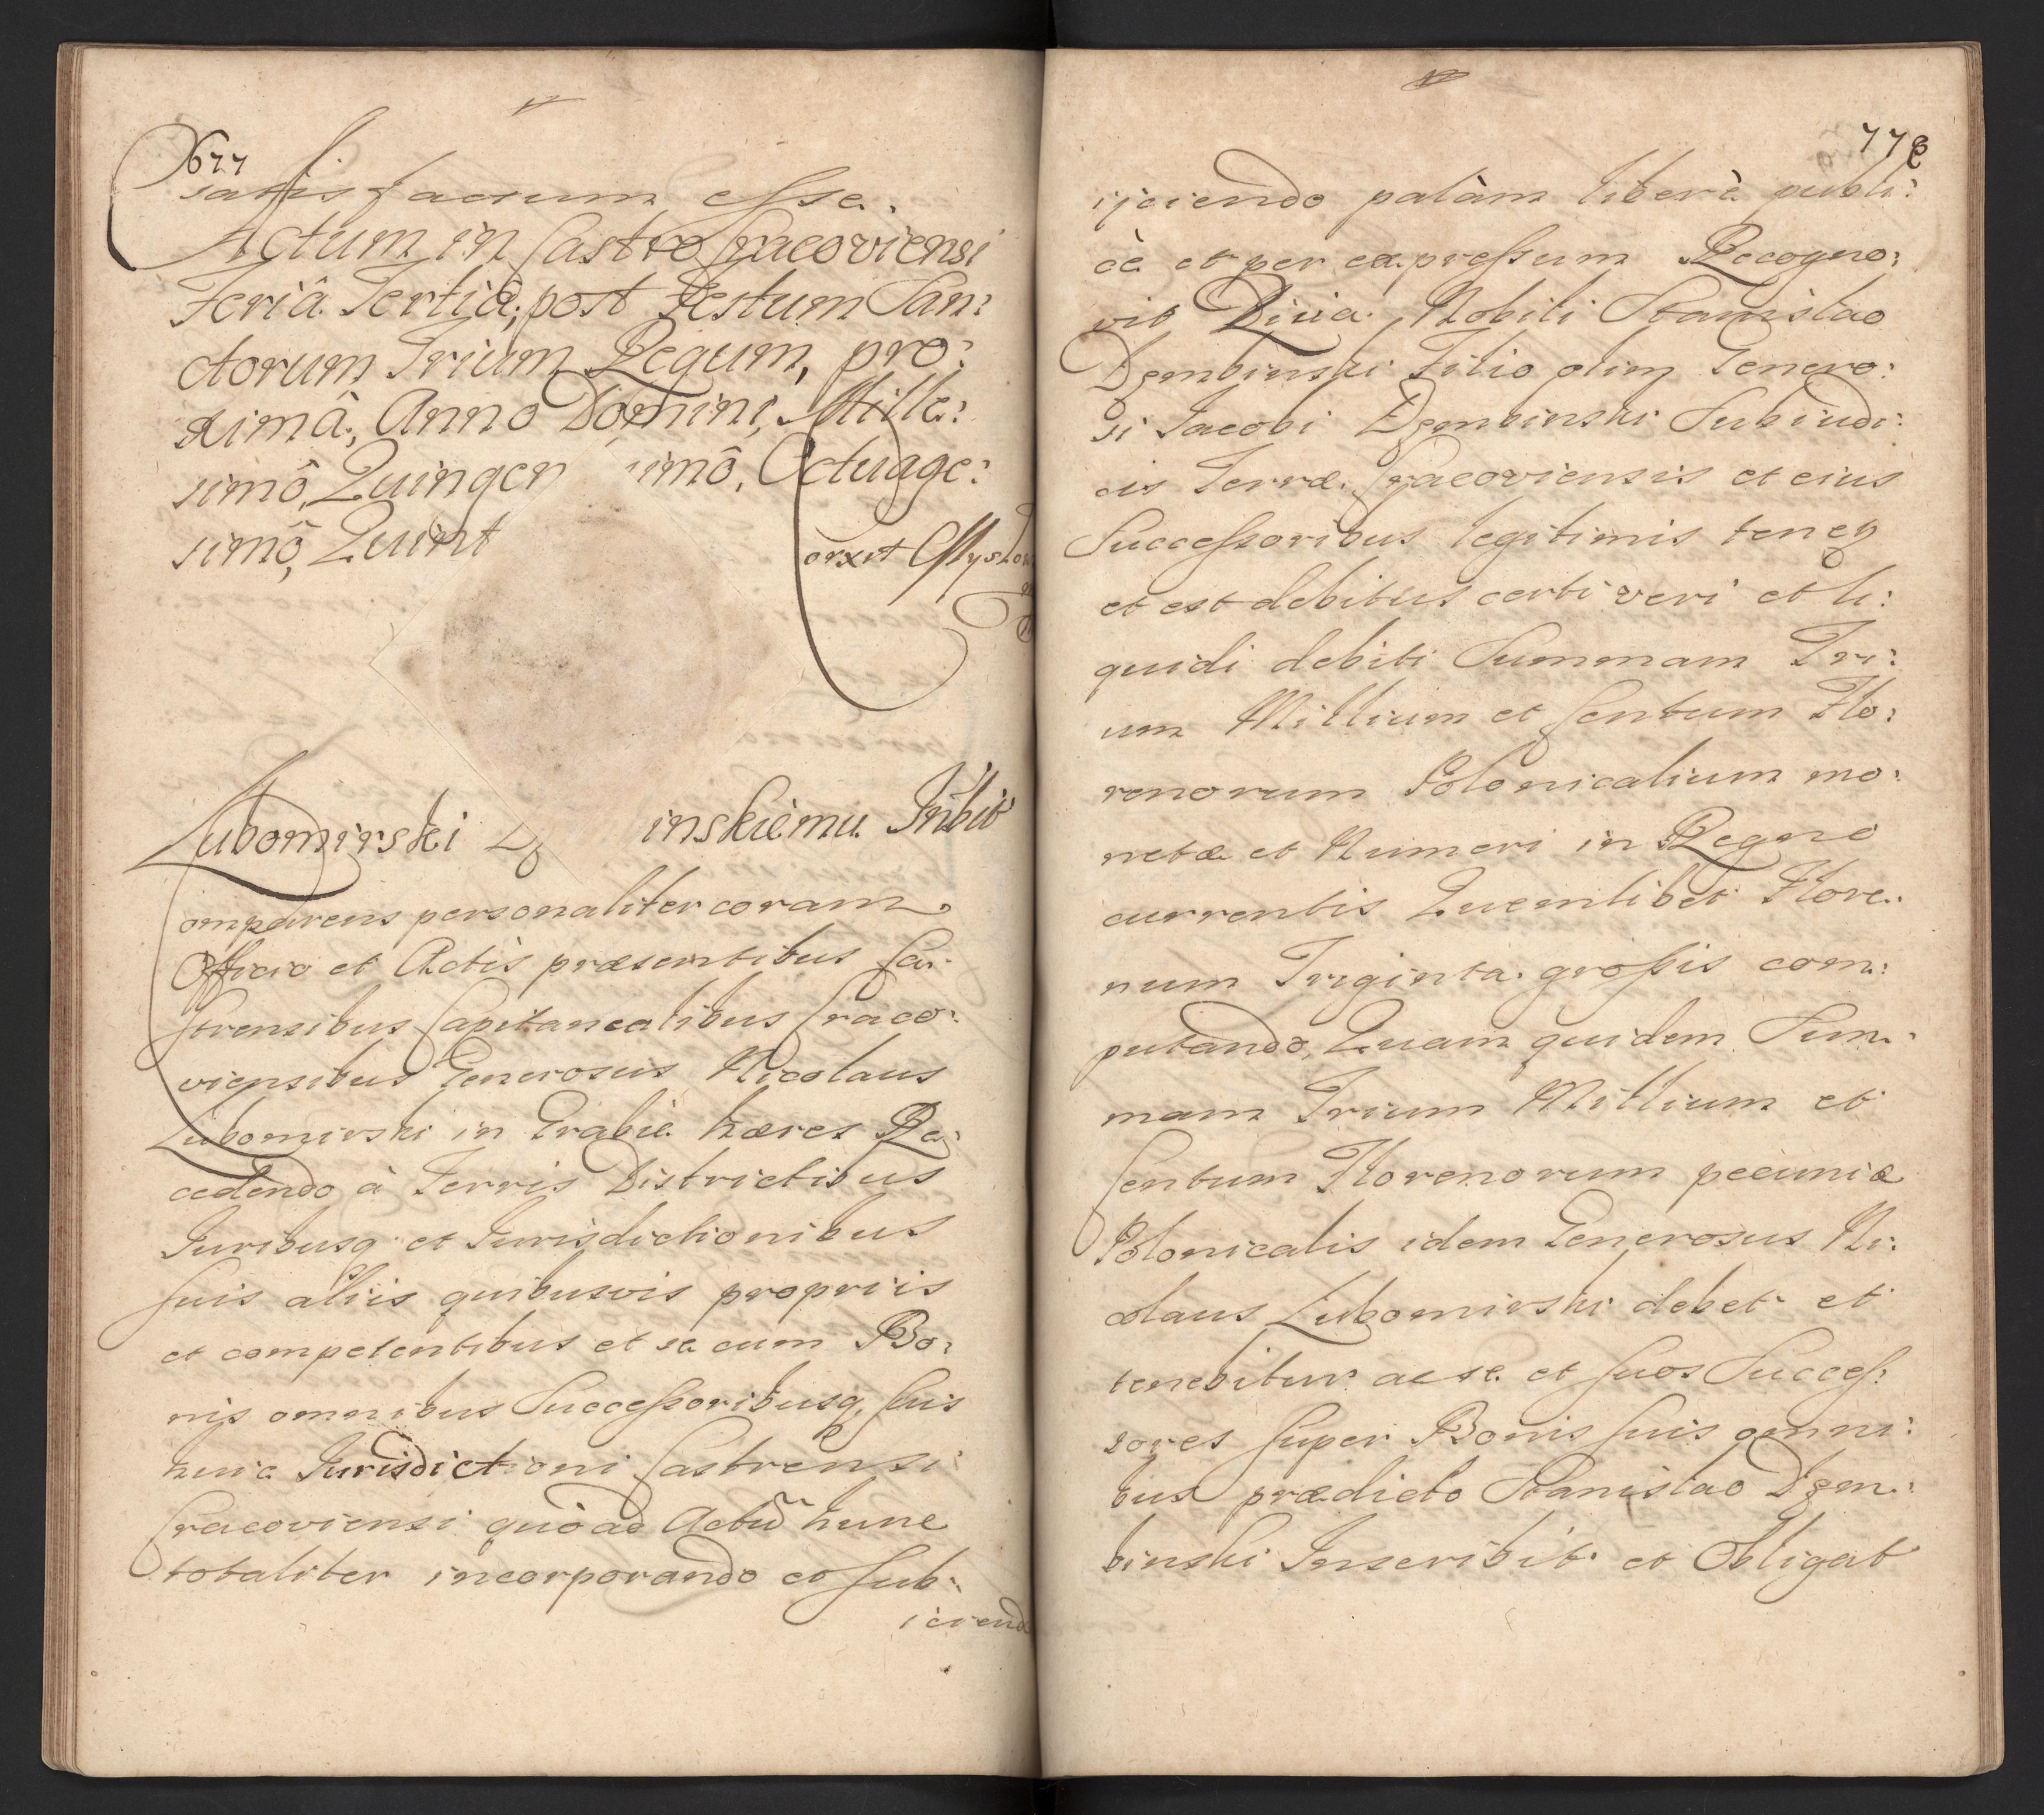 677
satis factum esse.
Actum in Castro Cracoviensi
Feriâ Tertiâ, post Festum San:
ctorum Trium Regum, pro:
ximâ, Anno Domini, Mille:
simô, Quingen imô, Octuage:
simô, Quint
orxit
Lubomirski inskiemu Inbit
omparens personaliter coram
Officio et Actis præsentibus Ca:
strensibus Capitanealibus Craco:
viensibus Generosus Nicolaus
Lubomirski in Grabie hæres Re:
cedendo à Terris Districtibus
Juribusq et Jurisdictionibus
suis aliis quibusvis propriis
et competentibus et se cum Bo:
nis omnibus Successoribusq suis
huic Jurisdictioni Castrensi
Cracoviensi quò ad Actũ hunc
totaliter incorporando et sub:
iciend
778
ijciendo palàm liberè publi:
cè et per expressum Recogno:
vit Quia Nobili Stanislao
Dzembinski Filio olim Genero:
si Jacobi Dzembinski Subiudi:
cis Terræ Cracoviensis et eius
Successoribus legitimis tenez
et est debitus certi veri et li:
quidi debiti Summam Tri:
um Millium et Centum Flo:
renorum Polonicalium mo:
netæ et Numeri in Regno
currentis Quemlibet Flore:
num Triginta grossis com:
putando, Quam quidem Sum:
mam Trium Millium et
Centum Florenorum pecuniæ
Polonicalis idem Generosus Ni:
colaus Lubomirski debet et
tenebitur ac se et suos Succes:
sores super Bonis suis omni:
bus prædicto Stanislao Dzem:
binski Inscribit et Obligat